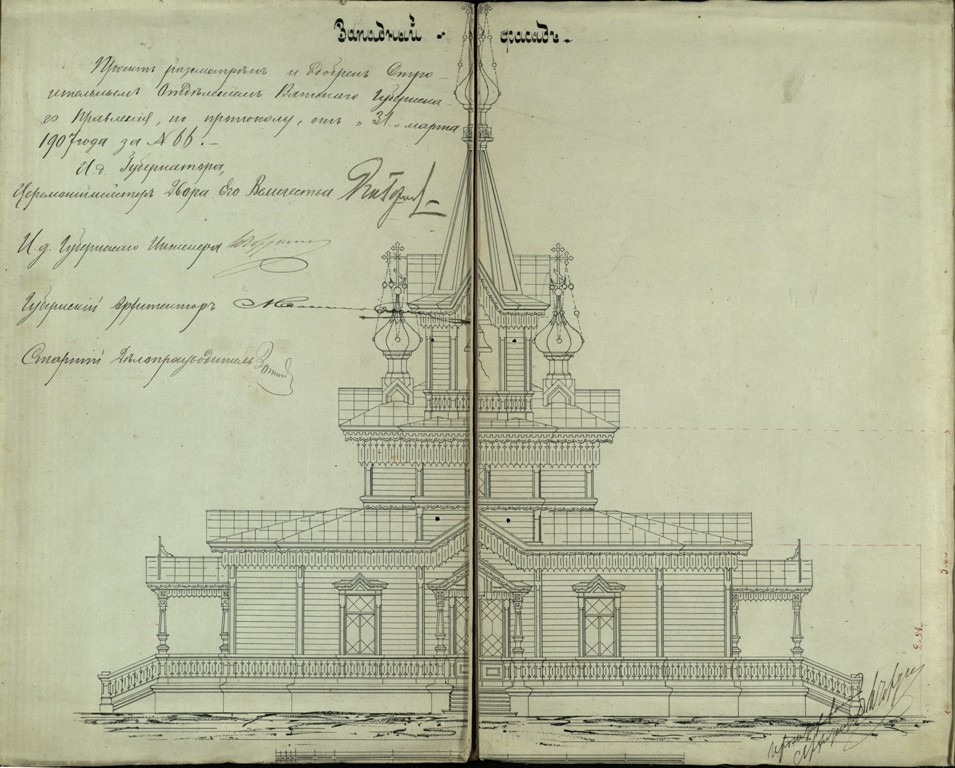 Западный - фасадъ.
Проектъ разсмотренъ и одобренъ Стро-
ительнымъ Отдѣленіемъ Вятскаго Губернска-
го Правленія, по протоколу, отъ „31„ марта
1907 года за № 66. –
И. д. Губернатора,
Церемоніймейстеръ Двора Его Величества
И. д. Губернскаго Инженера
Губернскій Архитекторъ
Старшій Дѣлопроизводитель